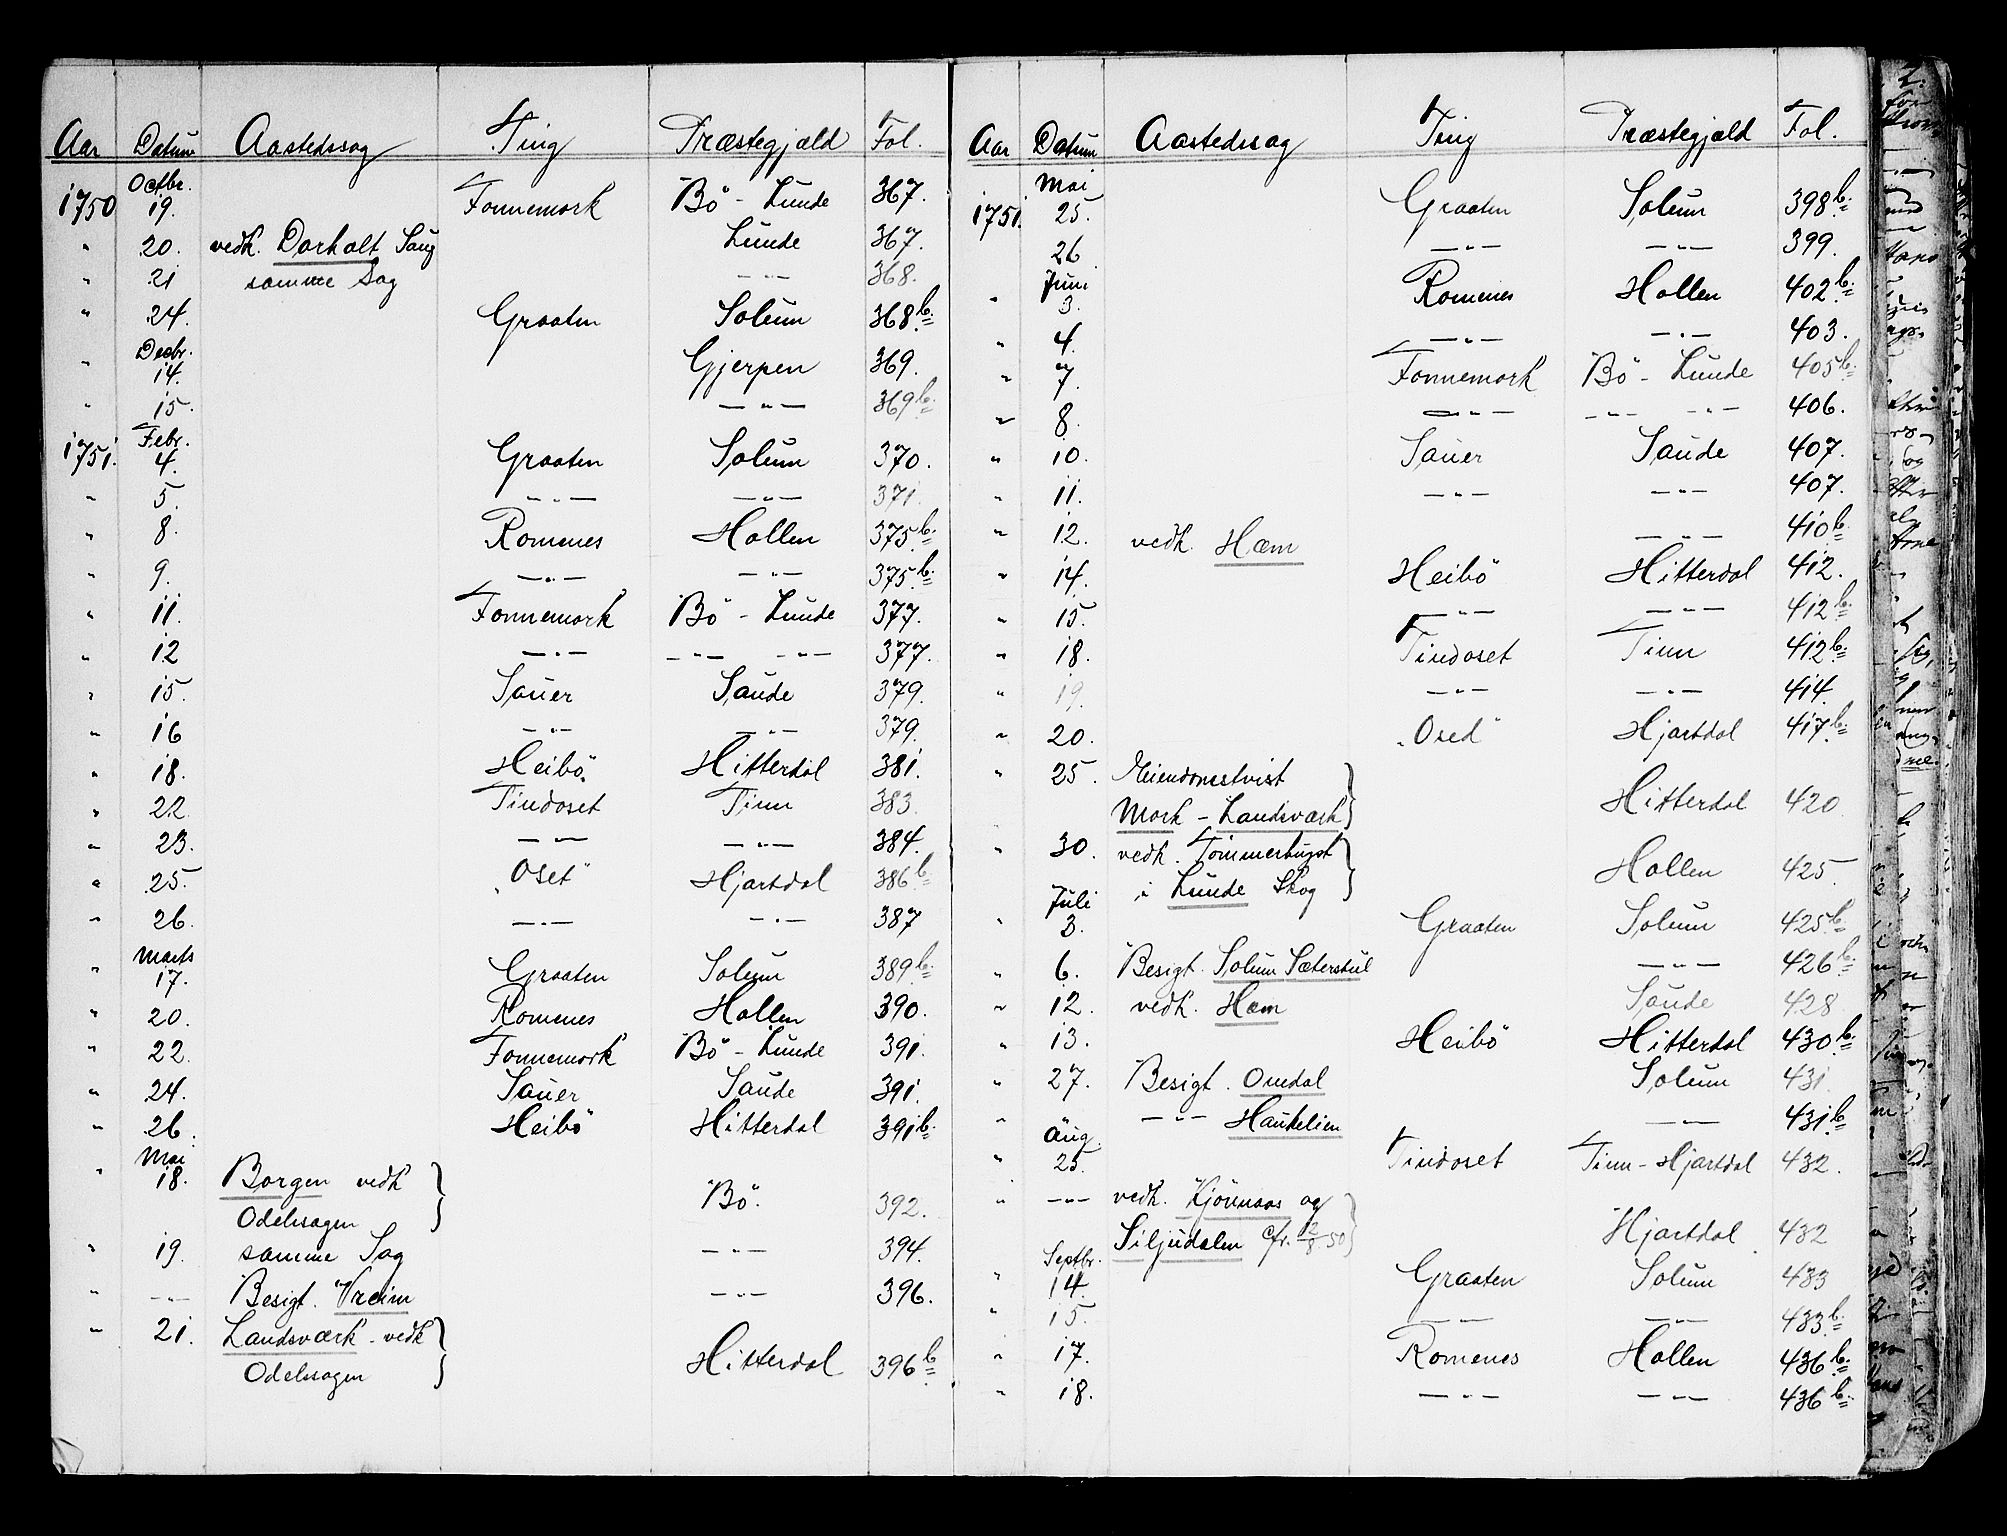 Aar Datum Aastedssag Ting Præstegjæld Fol.
1750 Octbr. 19. Fonnemork Bö - Lunde 367.
" 20. vedk. Dorholt Saug Lunde 367.
" 21 samme Sag — " — 368.
" 24. Graaten Solum 368 b.
" Decbr. 14. Gjerpen 369.
" 15. — " — 369 b.
1751. Febr. 4. Graaten Solum 370.
" 5. — " — — " — 371.
" 8. Romenes Hollen 375 b.
" 9. — " — — " — 375 b.
" 11. Fonnemork Bö - Lunde 377.
" 12 — " — — " — — " — 377.
" 15. Sauer Saude 379.
" 16 — " — — " — 379.
" 18. Heibö. Hitterdal 381.
" 22. Tindoset Tinn 383.
" 23. — " — — " — 384.
" 25. "Oset" Hjartdal 386 b.
" 26. — " — — " — 387
" Marts 17. Graaten Solum 389 b.
" 20. Romenes Hollen 390.
" 22. Fonnemork Bö - Lunde 391.
" 24. Sauer Saude 391.
" 26. Heibö Hitterdal 391 b.
" Mai 18. Borgen vedk
Odelssagen Bö. 392.
" 19. samme Sag — " — 394.
" — " — Besigt. Vreim — " — 396.
" 21. Landsværk - vedk
Odelssagen Hitterdal 396 b.
Aar Datum Aastedssag Ting Præstegjæld Fol.
1751. Mai 25. Graaten Solum 398 b.
26 — " — — " — 399.
" Juni 3. Romenes Hollen 402 b.
" 4. — " — — " — 403.
" 7. Fonnemork Bö - Lunde 405 b.
" 8. — " — — " — — " — 406.
" 10. Sauer Saude 407.
" 11. — " — — " — 407.
" 12. vedk. Hæm — " — 410 b.
" 14. Heibö Hitterdal 412.
" 15. — " — — " — 412 b.
" 18. Tindoset Tinn 412 b.
" 19. — " — — " — 414.
" 20. "Osed" Hjartdal 417 b.
" 25. Eiendomstvist
Mork - Landsværk Hitterdal 420
" 30. vedk. Tömmerhugst
i Lunde Skog Hollen 425
" Juli 3. Graaten Solum 425 b.
" 6. Besigt. Solum Sæterstul — " — 426 b.
" 12. vedk. Hæm Saude 428
" 13. Heibö Hitterdal 430 b.
" 27. Besigt. Omdal Solum 431
" " — " — Haukelien — " — 431 b.
" Aug. 25. Tindoset Tinn - Hjartdal 432.
" — " — vedk. Kjönaas og
Siljudalen cfr. 12/8 50 Hjartdal 432
" Septbr. 14. Graaten Solum 433
" 15. — " — — " — 433 b.
" 17. Romenes Hollen 436 b.
" 18. — " — — " — 436 b.